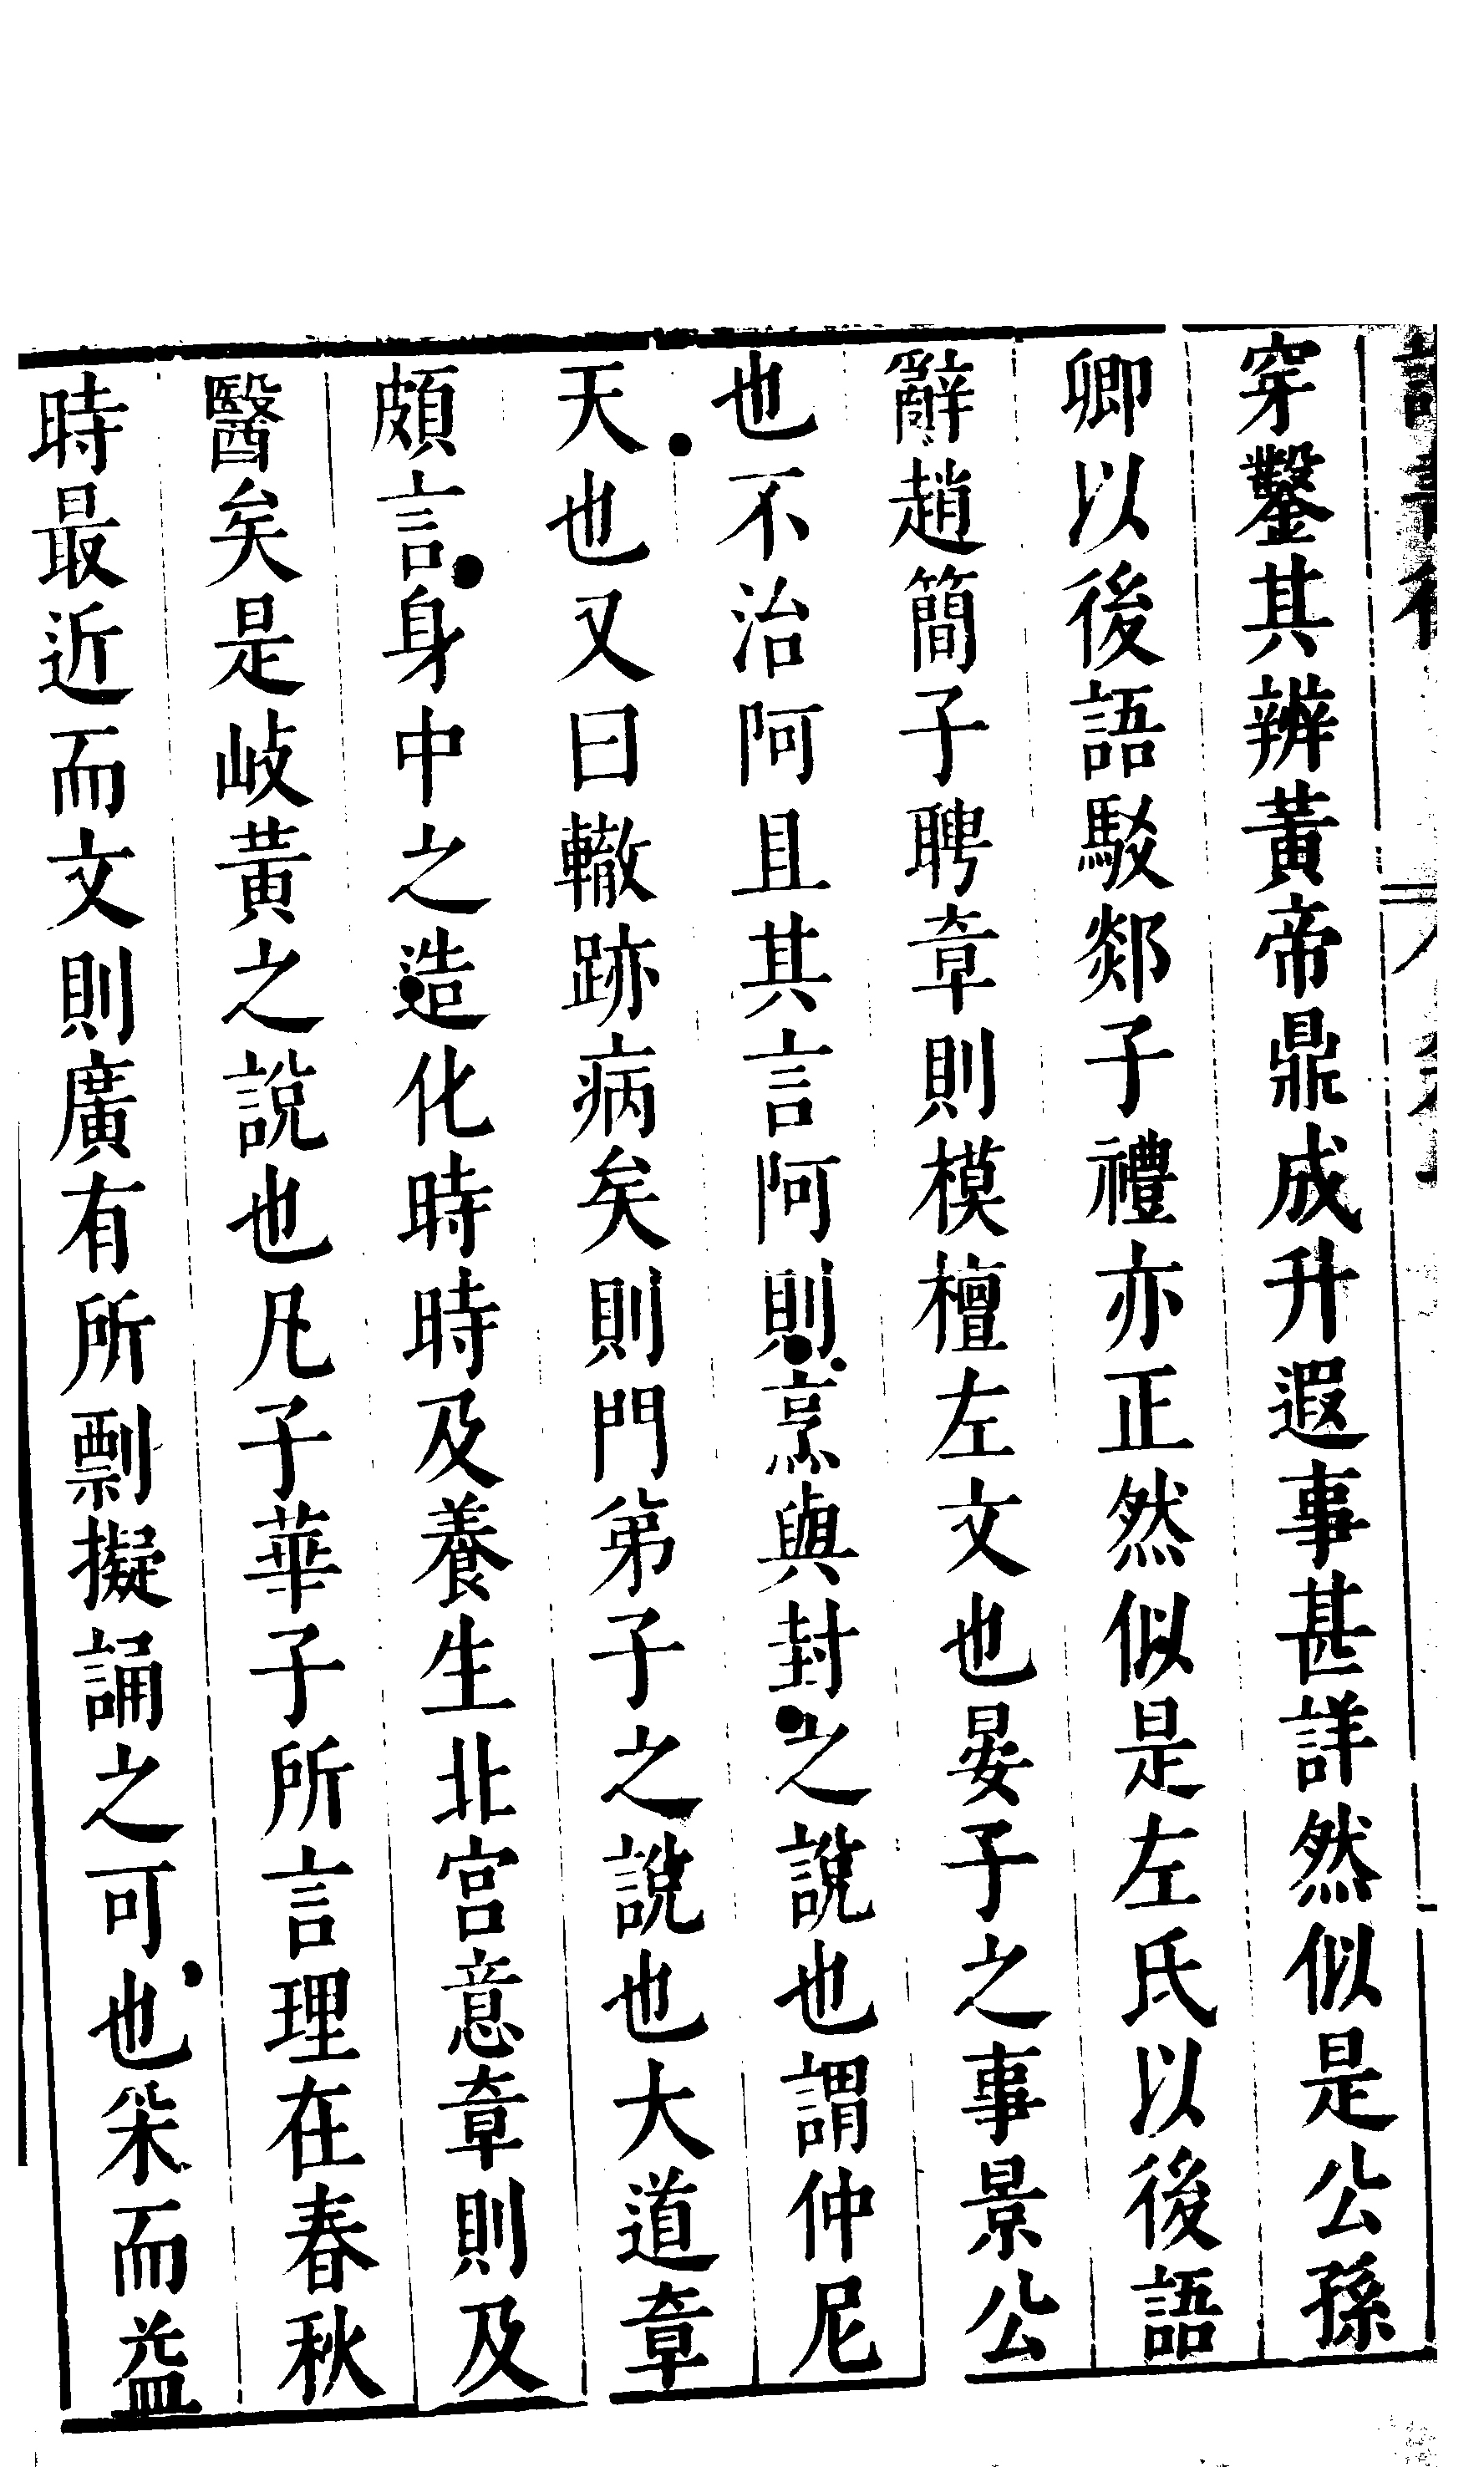 穿鑿其辨黃帝鼎成升遐事甚詳然似是公孫
卿以後語駁郯子禮亦正然似是左氏以後語
辭趙簡子聘章則模檀左文也晏子之事景公
也不治阿且其言阿則烹與封之說也謂仲尼
天也又曰轍跡病矣則門弟子之說也大道章
頗言身中之造化時時及養生北宮意章則及
醫矣是岐黃之說也凡子華子所言理在春秋
時最近而文則廣有所剽擬誦之可也采而益